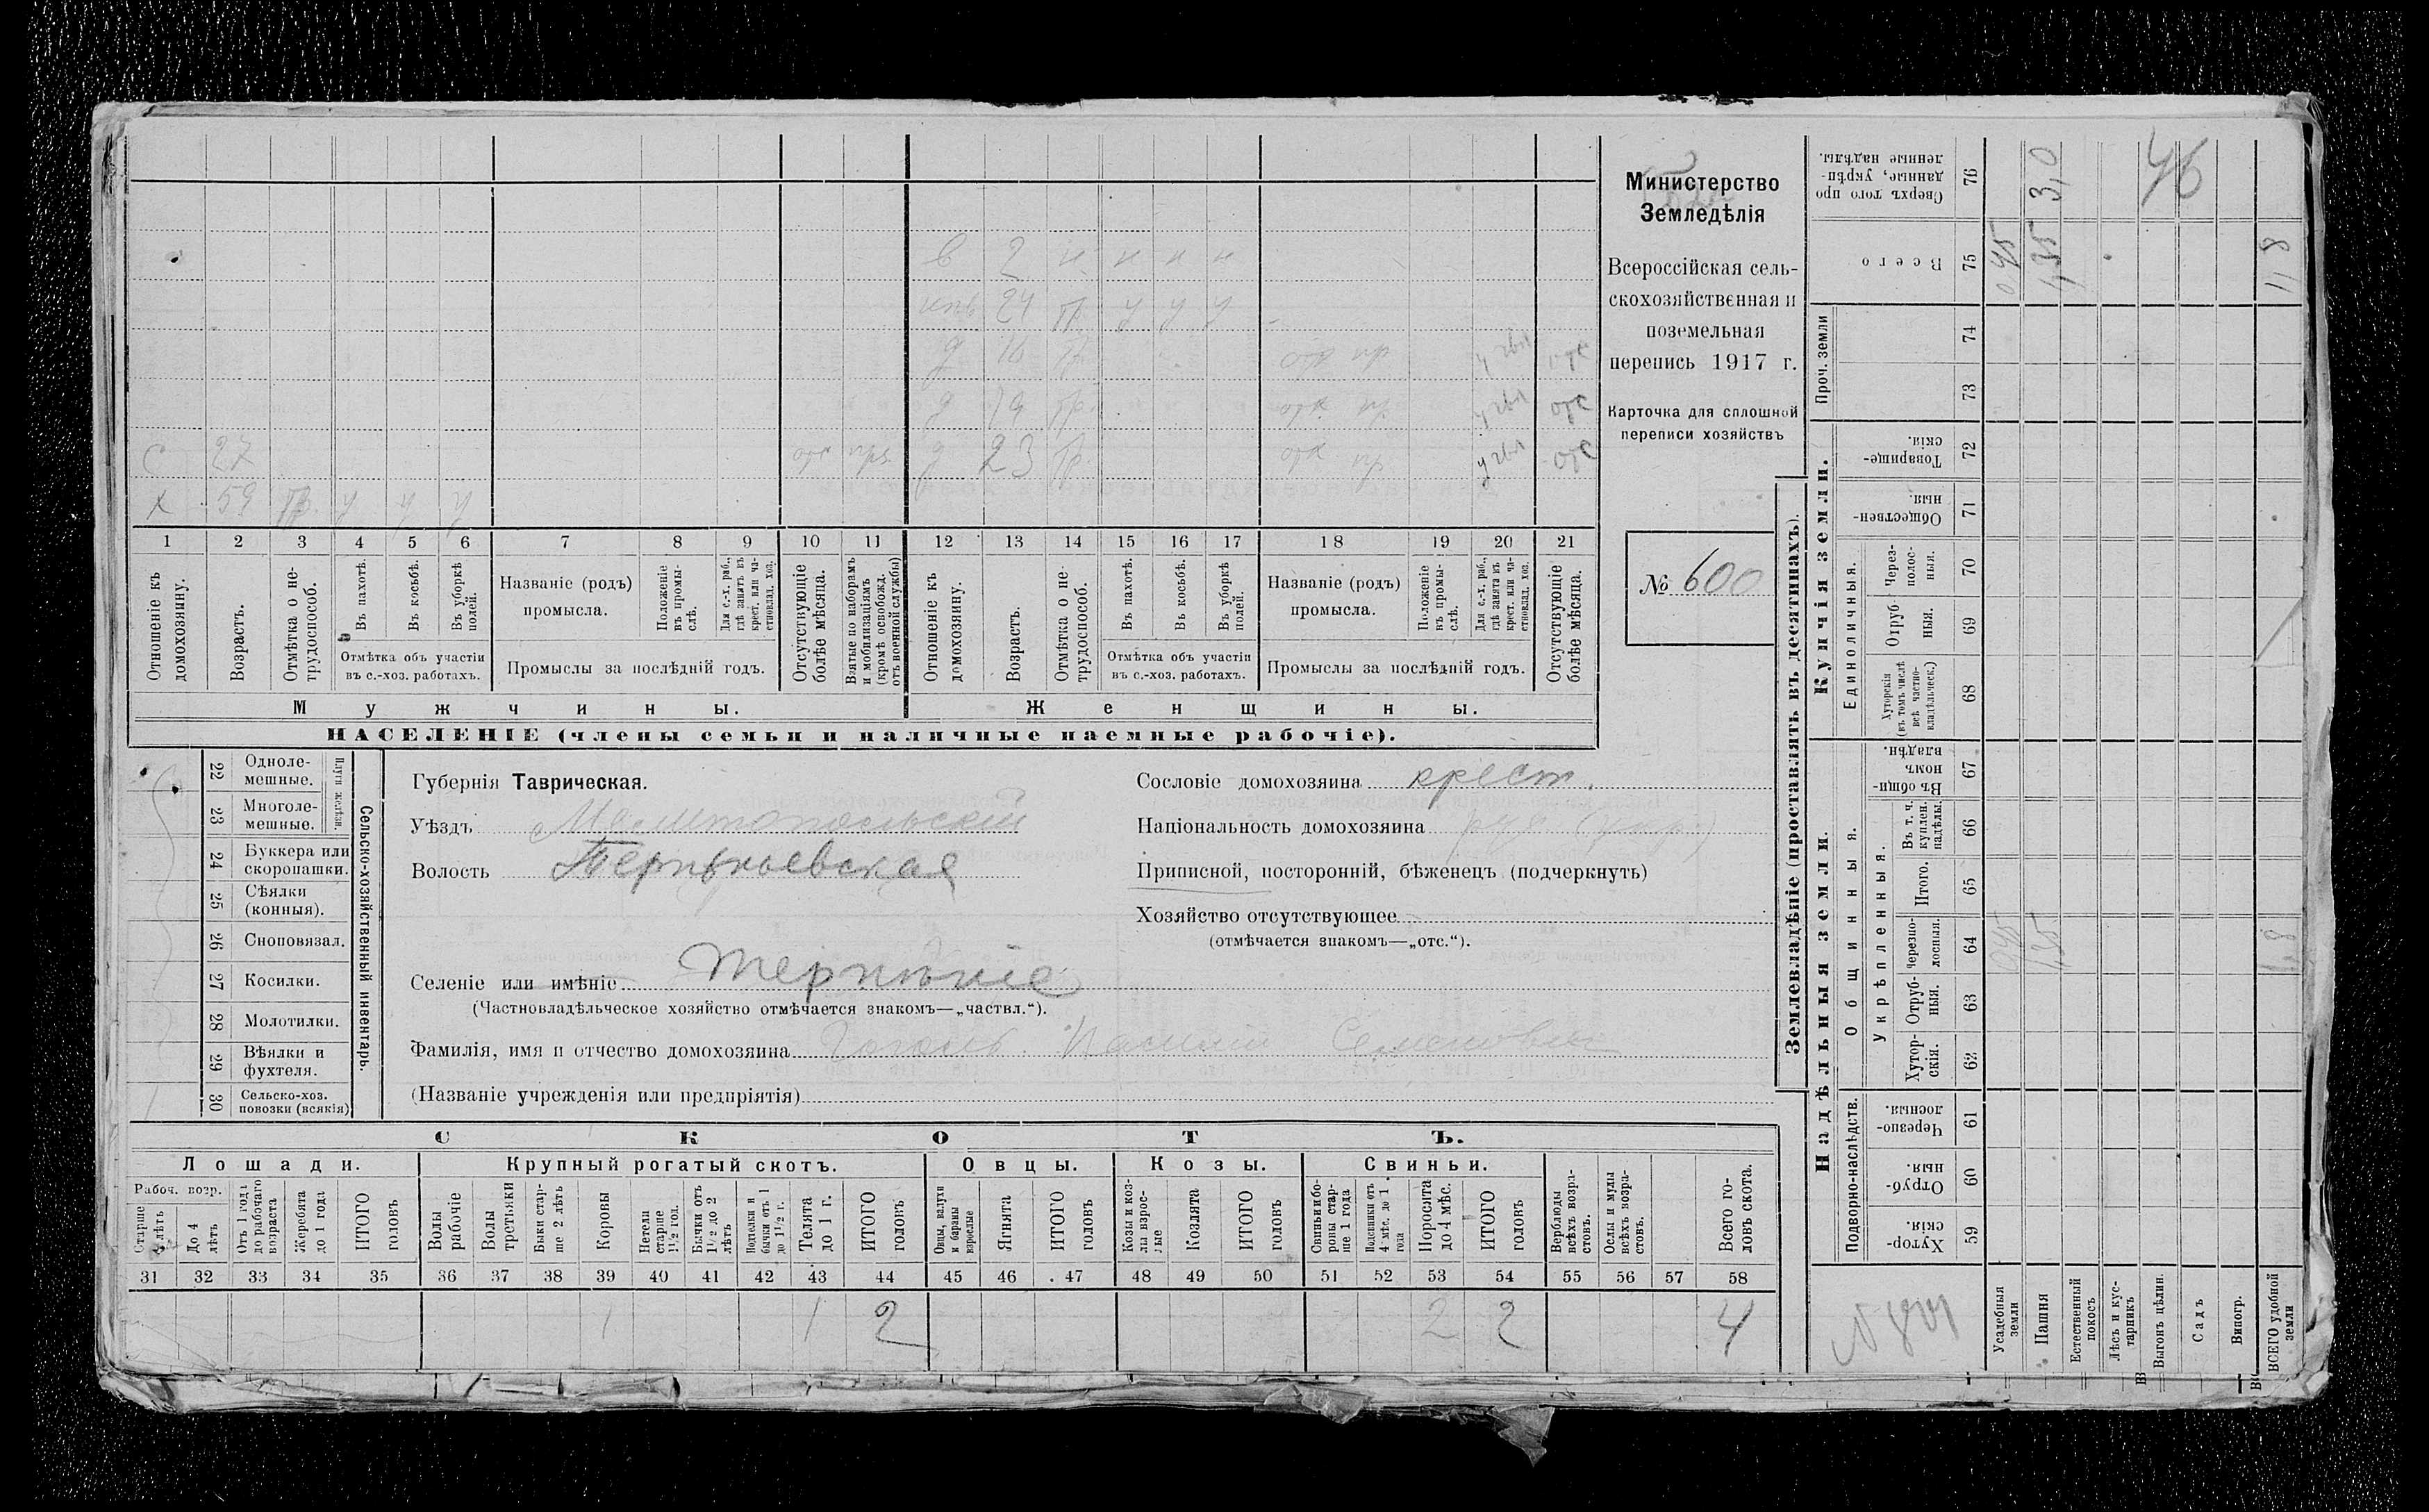 Министерство
Земледѣлія
Всероссійская сель-
скохозяйственная и
поземельная
перепись 1917 г.
Карточка для сплошной
переписи хозяйствъ
№ 600
в 2 н н н н
24 тр. у у у
д 16
д 19 тр.
С 27 д 23 тр.
х 59 тр. у у у
1 2 3 4 5 6 7 8 9 10 11 12 13 14 15 16 17 18 19 20 21
Отношеніе къ домохозяину.
Возрастъ.
Отмѣтка о не-трудоспособ.
Въ пахотѣ.
Въ косьбѣ.
Въ уборкѣ полей.
Отмѣтка объ участіи
въ с.-хоз. работахъ.
Названіе (родъ)
промысла.
Положеніе въ промы-слѣ.
Для с.-х. раб., гдѣ занятъ въ крест. или ча-стновлад. хоз.
Промыслы за послѣдній годъ.
Отсутствующіе болѣе мѣсяца.
Взятые по наборамъ и мобилизаціямъ (кромѣ освобожд. отъ военной службы)
Отношеніе къ домохозяину.
Возрастъ.
Отмѣтка о не-трудоспособ.
Въ пахотѣ.
Въ косьбѣ.
Въ уборкѣ полей.
Отмѣтка объ участіи
въ с.-хоз. работахъ.
Названіе (родъ)
промысла.
Положеніе въ промы-слѣ.
Для с.-х. раб., гдѣ занята въ крест. или ча-стновлад. хоз.
Промыслы за послѣдній годъ.
Отсутствующіе болѣе мѣсяца.
Мужчины.
Женщины.
НАСЕЛЕНІЕ (члены семьи и наличные наемные рабочіе).
22 Одноле-мешные.
23 Многоле-мешные.
Плуги желѣзн.
24 Буккера или скоропашки.
25 Сѣялки (конныя).
26 Сноповязал.
27 Косилки.
28 Молотилки.
29 Вѣялки и фухтеля.
30 Сельско-хоз. повозки (всякія)
Сельско-хозяйственный инвентарь.
Губернія Таврическая.
Уѣздъ Мелитопольскій
Волость Терпѣньевская
Селеніе или имѣніе Терпѣніе
(Частновладѣльческое хозяйство отмѣчается знакомъ—„частвл.“).
Фамилія, имя и отчество домохозяина Гоголь Семеновичъ
(Названіе учрежденія или предпріятія)
Сословіе домохозяина крест.
Національность домохозяина рус. (укр.)
Приписной, посторонній, бѣженецъ (подчеркнуть)
Хозяйство отсутствующее
(отмѣчается знакомъ—„отс.“).
СКОТЪ.
Лошади.
Крупный рогатый скотъ.
Овцы.
Козы.
Свиньи.
Рабоч. возр.
Старше 4 лѣтъ
До 4 лѣтъ
Отъ 1 года до рабочаго возраста
Жеребята до 1 года
ИТОГО головъ
Волы рабочіе
Волы третьяки
Быки стар-ше 2 лѣтъ
Коровы
Нетели старше 1½ год.
Бычки отъ 1½ до 2 лѣтъ
Подтелки и бычки отъ 1 до 1½ г.
Телята до 1 г.
ИТОГО головъ
Овцы, валухи и бараны взрослые
Ягнята
ИТОГО головъ
Козы и коз-лы взрос-лые
Козлята
ИТОГО головъ
Свиньи и бо-ровы стар-ше 1 года
Подсвинки отъ 4 мѣс. до 1 года
Поросята до 4 мѣс.
ИТОГО головъ
Верблюды всѣхъ возра-стовъ.
Ослы и мулы всѣхъ возра-стовъ.
Всего го-ловъ скота.
31 32 33 34 35 36 37 38 39 40 41 42 43 44 45 46 47 48 49 50 51 52 53 54 55 56 57 58
1 1 2 2 2 4
Землевладѣніе (проставлять въ десятинахъ).
Надѣльныя земли.
Купчія земли.
Проч. земли
Подворно-наслѣдств.
Общинныя.
Укрѣпленныя.
Единоличныя.
Сверхъ того про
данные, укрѣп-
ленные надѣлы.
76
Всего 75
74
73
Товарище-скія. 72
Обществен-ныя. 71
Через-полос-ныя. 70
Отруб-ныя. 69
Хуторскія (въ томъ числѣ всѣ частно-владѣльческ.) 68
Въ общи-номъ владѣн. 67
Въ т. ч. куплен. надѣлы. 66
Итого. 65
Черезпо-лосныя. 64
Отруб-ныя. 63
Хутор-скія. 62
Черезпо-лосныя. 61
Отруб-ныя. 60
Хутор-скія. 59
Усадебныя земли
Пашня
Естественный покосъ
Лѣсъ и кус-тарникъ
Выгонъ цѣлин.
Садъ
Виногр.
ВСЕГО удобной земли
3,0
46
0,45
1,35
1,8
0,45
1,35
1,8